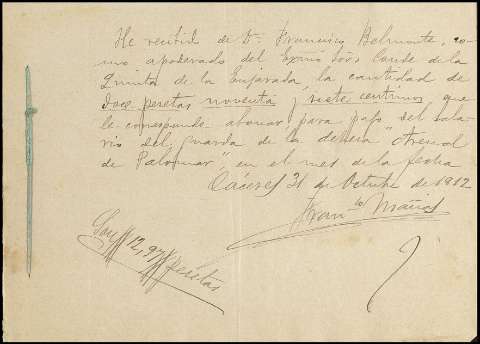 He recibido de Dn. Francisco Belmonte, co-
mo apoderado del Exmo Sor Conde de la
Quinta de la Enjarada, la cantidad de
doce pesetas noventa y siete centimos que
le corresponde abonar para pago del sala-
rio del guarda de la dehesa "Arenal
de Palomar", en el mes de la fecha
Cáceres 31 de Octubre de 1912
Franco Mañas
Son # 12,97 # pesetas